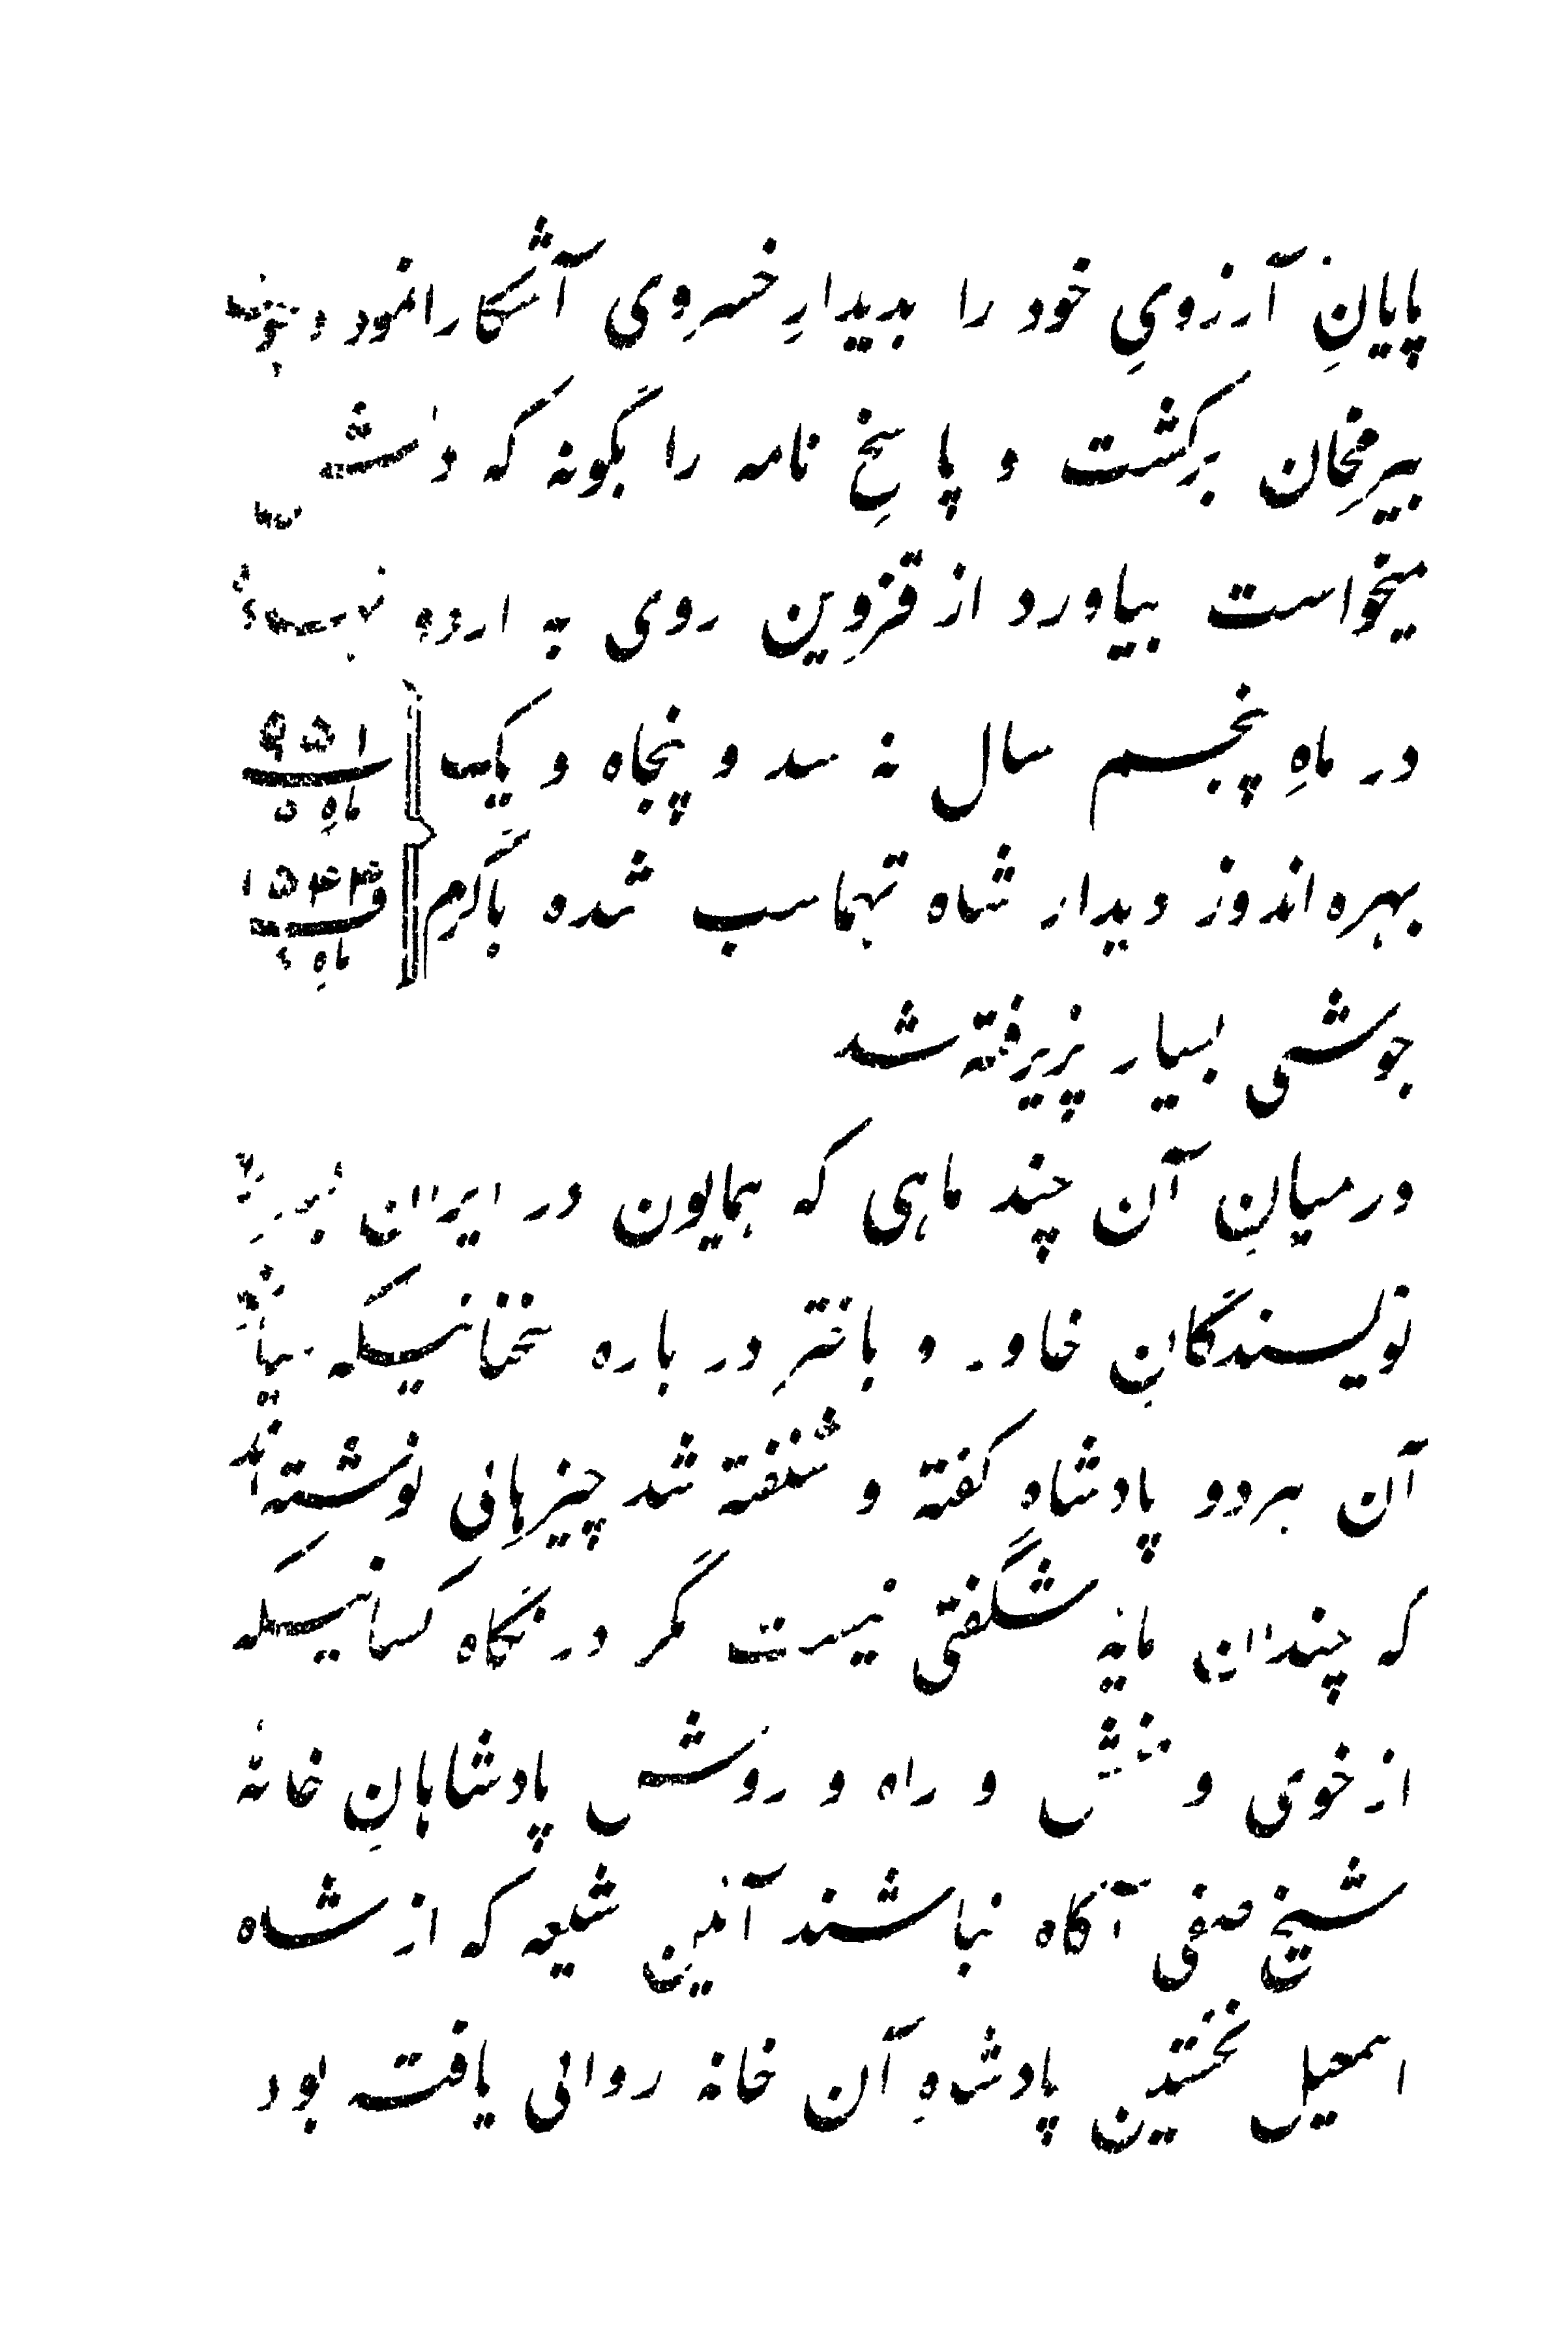 پایانِ آرزویِ خود را بدیدارِ خسروی آشکارا نمود و چون
بیرمخان برگشت و پاسخِ نامه را بگونه که دلش
میخواست بیاورد از قزوین روی به اردو نهاده
در ماهِ پنجم سال نه سد و پنجاه و یک
۹۵۱
ماهِ ۵
بهره اندوز دیدار شاه تهماسب شده باگرم
۱۵۴۴
ماهِ
جوشی بسیار پزیرفته شد
در میانِ آن چند ماهی که همایون در ایران
نویسندگانِ خاور و باختر در باره سخنانیکه میانِ
آن هر دو پادشاه گفته و شنفته شد چیزهائی نوشته‌اند
که چندان مایهٔ شگفتی نیست مگر در نگاه کسانیکه
از خوی و منش و راه و روش پادشاهانِ خانهٔ
شیخ صفی آگاه نباشند آئین شیعه که از شاه
اسمعیل نخستین پادشاهِ آن خانه روائی یافته بود